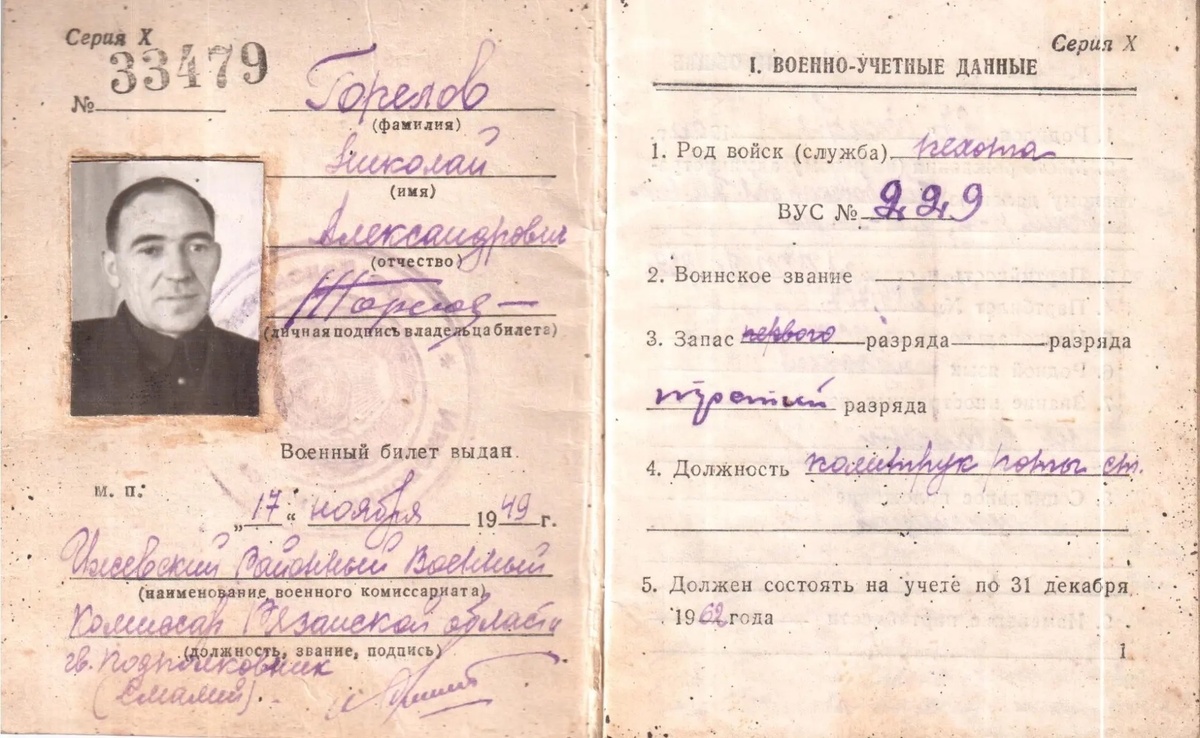 Серия X
33479
№
Горелов
(фамилия)
Николай
(имя)
Александрович
(отчество)
(личная подпись владельца билета)
Военный билет выдан
м. п.
„17“ ноября 1949 г.
Ижевский Районный Военный
(наименование военного комиссариата)
Комиссар Рязанской области
(должность, звание, подпись)
гв. подполковник
Серия X
I. ВОЕННО-УЧЕТНЫЕ ДАННЫЕ
1. Род войск (служба) пехота
ВУС №
2. Воинское звание
3. Запас первого разряда разряда
разряда
4. Должность политрук роты ст.
5. Должен состоять на учете по 31 декабря
1962 года
1